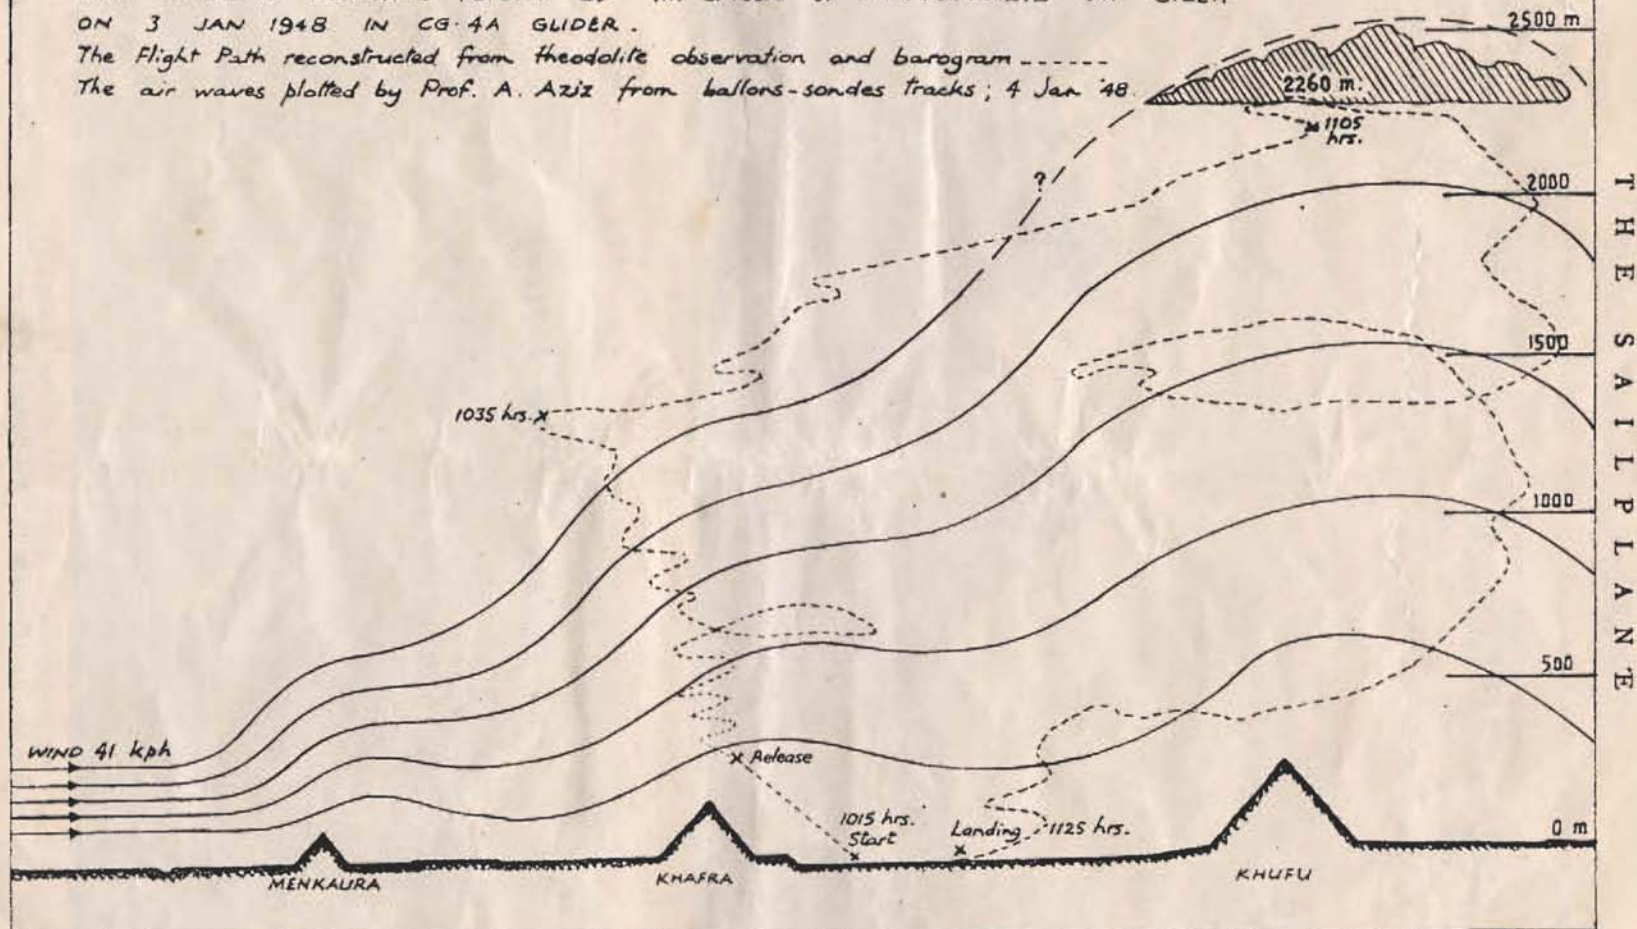 ON 3 JAN 1948 IN CG-4A GLIDER.
The Flight Path reconstructed from theodolite observation and barogram ------
The air waves plotted by Prof. A. Aziz from ballons-sondes tracks; 4 Jan '48.
2500 m
2260 m.
1105
hrs.
?
2000
1500
1035 hrs.
1000
500
WIND 41 kph
Release
1015 hrs.
Start
Landing 1125 hrs.
0 m
MENKAURA
KHAFRA
KHUFU
THE SAILPLANE